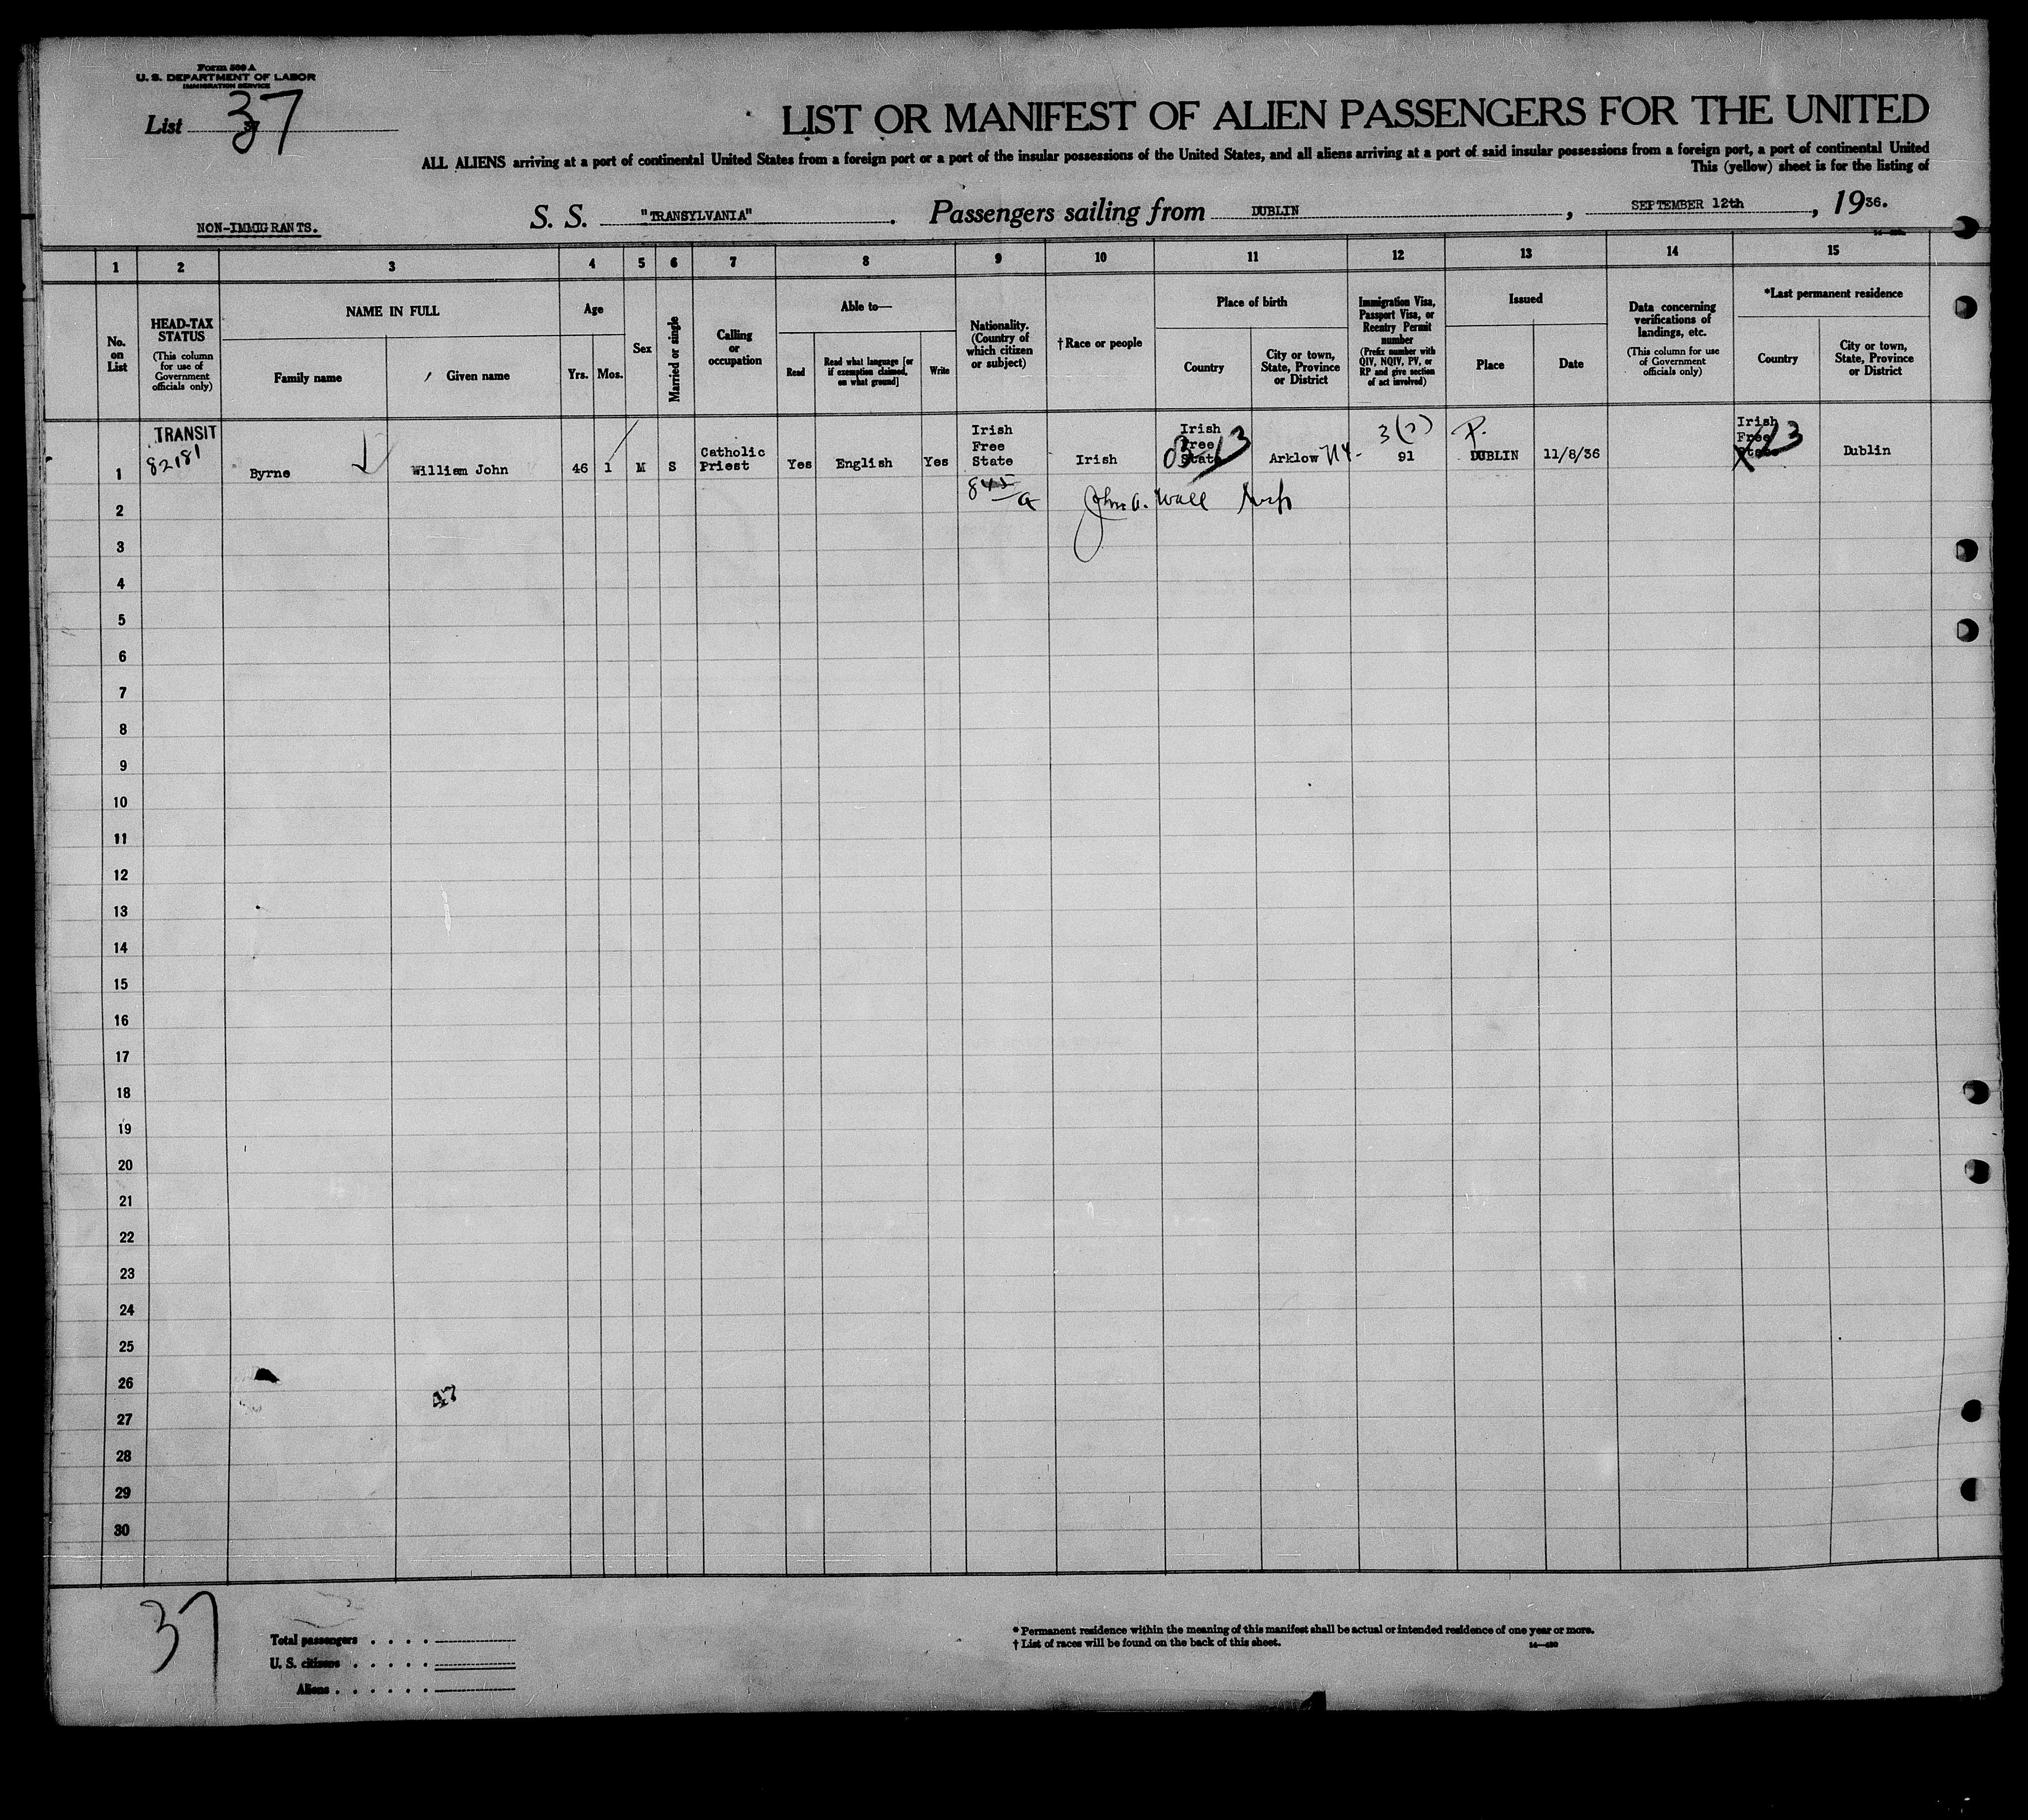 Form 500 A
U. S. DEPARTMENT OF LABOR
IMMIGRATION SERVICE
List 37
LIST OR MANIFEST OF ALIEN PASSENGERS FOR THE UNITED
ALL ALIENS arriving at a port of continental United States from a foreign port or a port of the insular possessions of the United States, and all aliens arriving at a port of said insular possessions from a foreign port, a port of continental United
This (yellow) sheet is for the listing of
NON-IMMIGRANTS.
S. S. "TRANSYLVANIA". Passengers sailing from DUBLIN, SEPTEMBER 12th, 1936.
1 2 3 4 5 6 7 8 9 10 11 12 13 14 15
No. on List
HEAD-TAX STATUS
(This column for use of Government officials only)
NAME IN FULL
Family name
Given name
Age
Yrs.
Mos.
Sex
Married or single
Calling or occupation
Able to—
Read
Read what language [or if exemption claimed, on what ground]
Write
Nationality. (Country of which citizen or subject)
†Race or people
Place of birth
Country
City or town, State, Province or District
Immigration Visa, Passport Visa, or Reentry Permit number
(Prefix number with QIV, NQIV, PV, or RP and give section of act involved)
Issued
Place
Date
Data concerning verifications of landings, etc.
(This column for use of Government officials only)
*Last permanent residence
Country
City or town, State, Province or District
1
TRANSIT
82181
Byrne
William John
46
1
M
S
Catholic Priest
Yes
English
Yes
Irish Free State
Irish
Irish Free State
Arklow
3(3)
91
P.
DUBLIN
11/8/36
Irish Free State
Dublin
John A. Wall
2
3
4
5
6
7
8
9
10
11
12
13
14
15
16
17
18
19
20
21
22
23
24
25
26
47
27
28
29
30
37
Total passengers
U. S. citizens
Aliens
* Permanent residence within the meaning of this manifest shall be actual or intended residence of one year or more.
† List of races will be found on the back of this sheet.